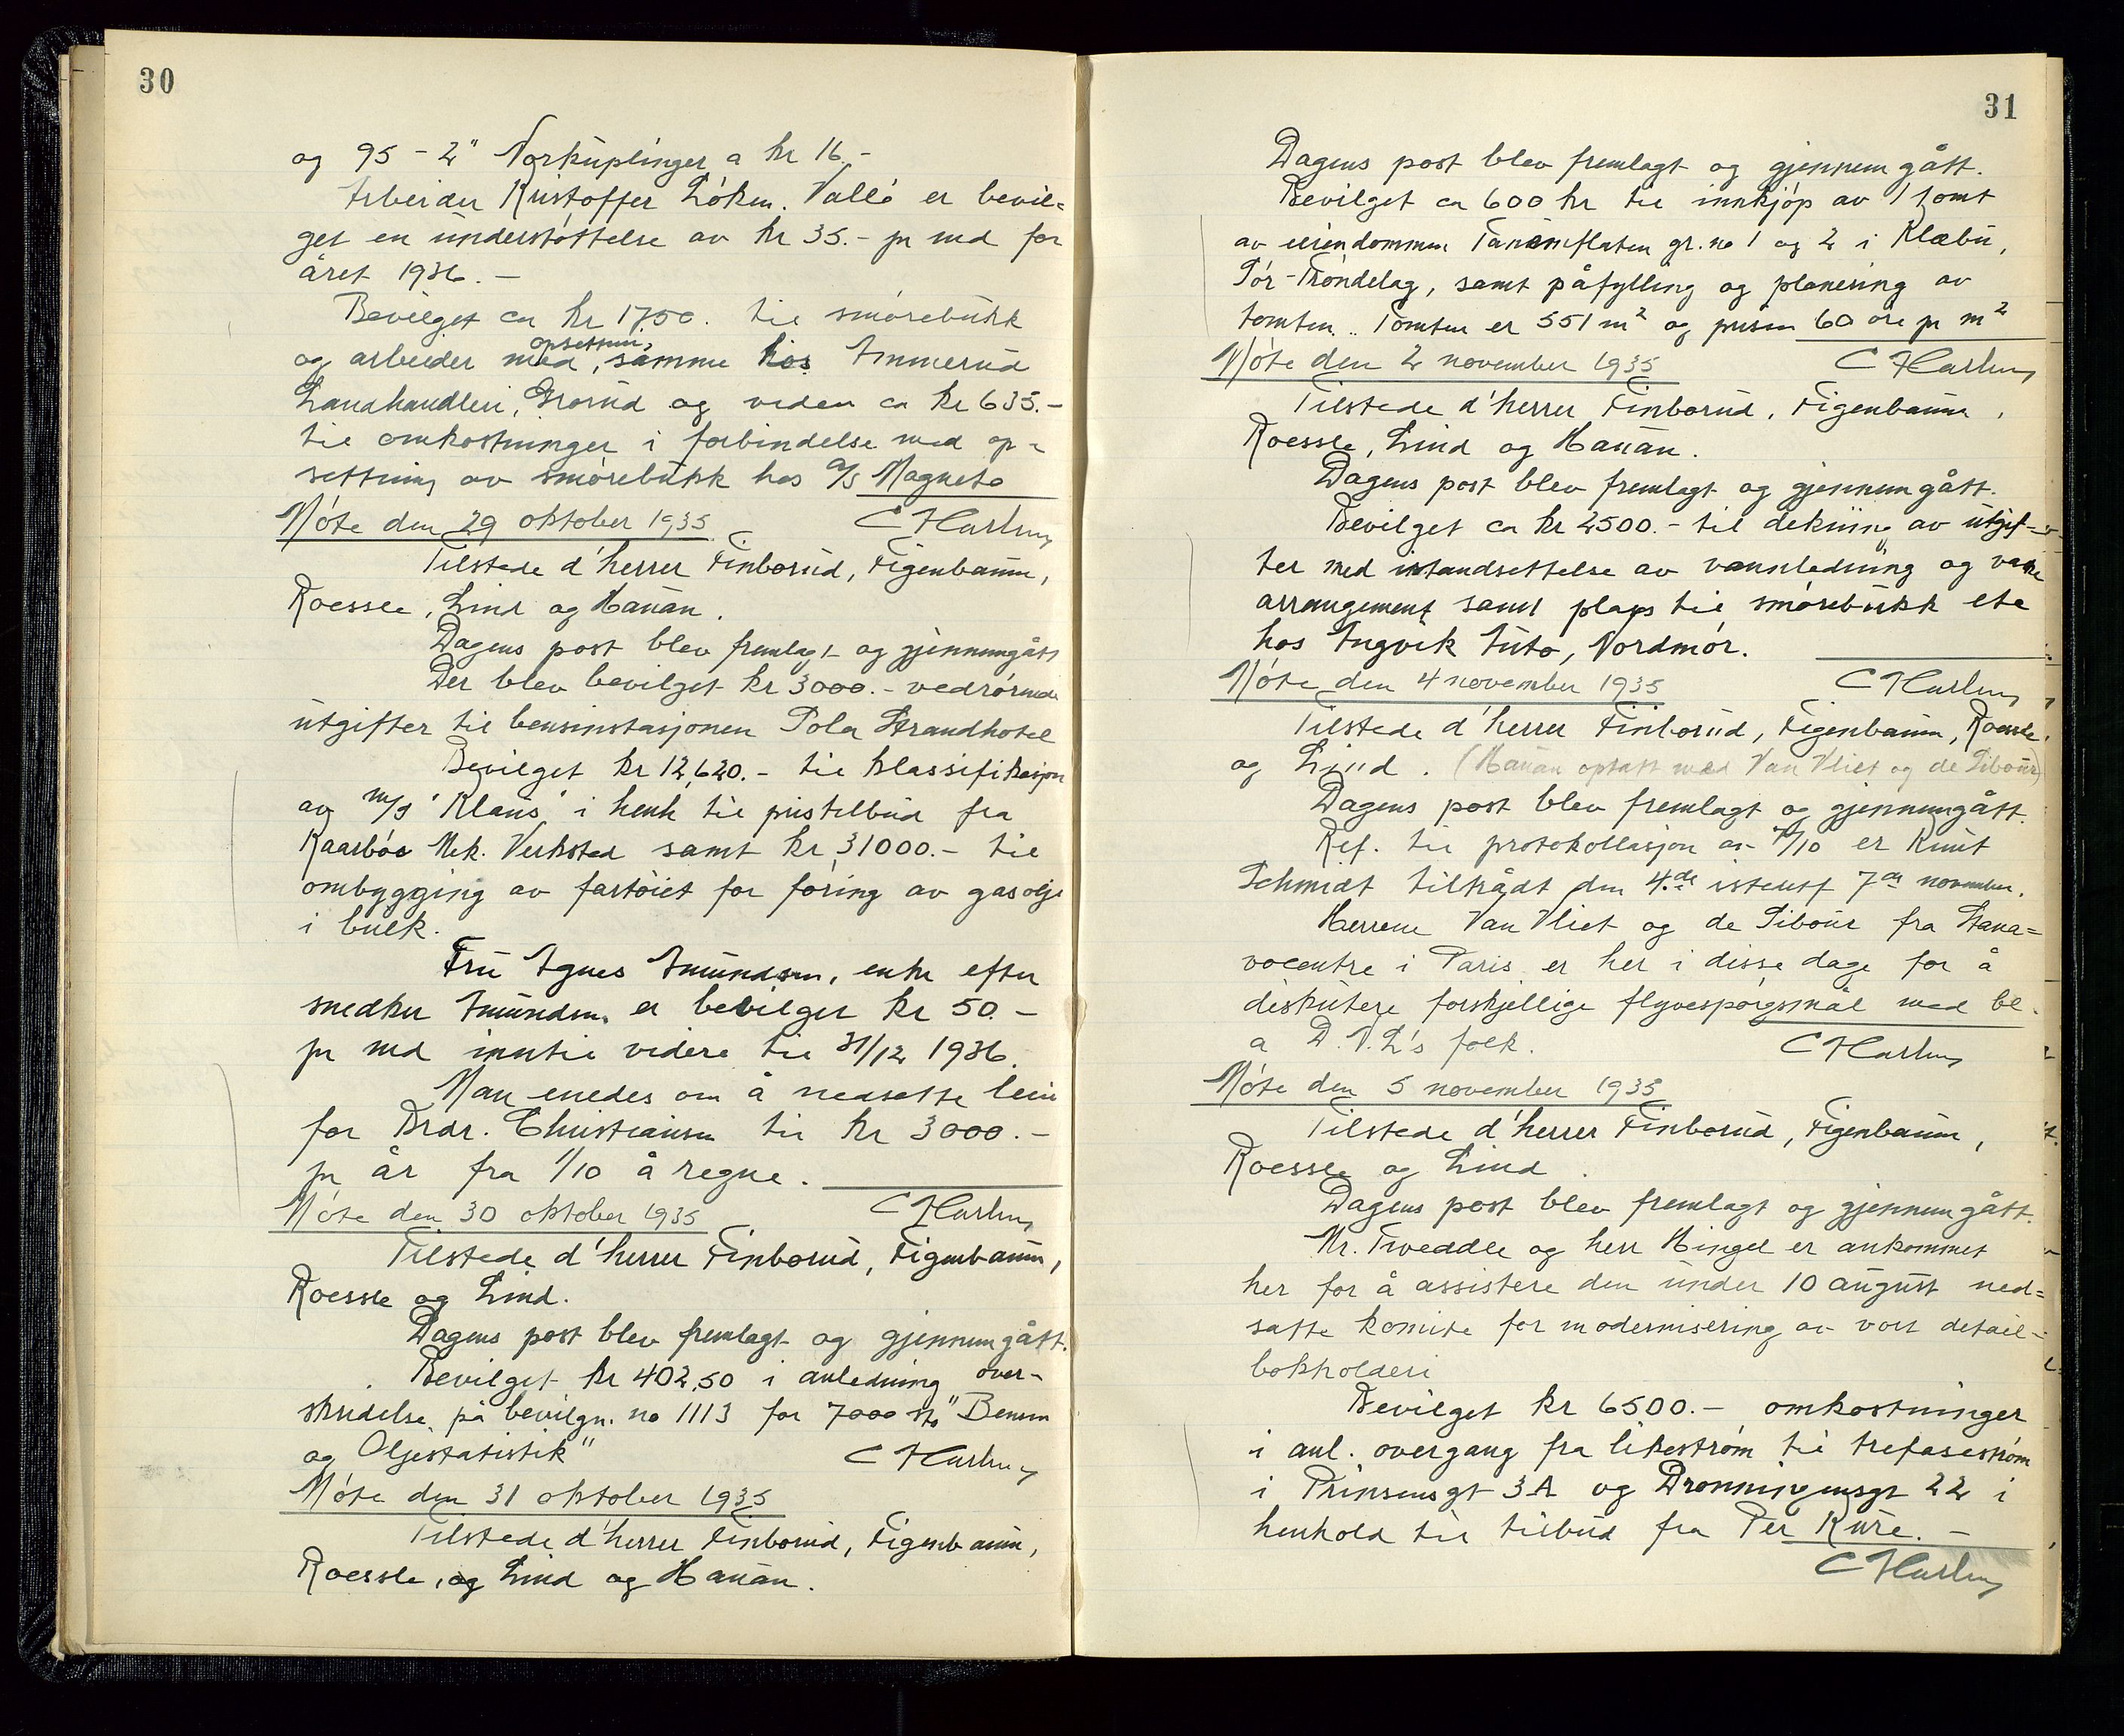 30
og 95 - 2" Norkuplinger a kr 16.-
Arbeider Kristoffer Löken. Vallö er bevil=
get en understöttelse av kr 35.- pr md for
året 1936.-
Bevilget ca kr 1750. til smörebukk
og arbeider med opsettning samme hos Ammerud
Landhandleri, Grorud og videre ca kr 635.-
til omkostninger i forbindelse med op=
settning av smörebukk hos A/S Magneto
C Harling
Möte den 29 oktober 1935
Tilstede d'herrer Finborud, Figenbaum,
Roessle, Lind og Hanan.
Dagens post blev fremlagt og gjennemgått
Der blev bevilget kr 3000.- vedrörende
utgifter til bensinstasjonen Sola Strandhotel
Bevilget kr 12,620.- til klassifikasjon
av m/s "Klaus" i henh til pristilbud fra
Kaarbös Mek. Verksted samt kr 31000.- til
ombygging av fartöiet for föring av gasolje
i bulk.
Fru Agnes Amundsen, enke efter
snedker Amundsen er bevilget kr 50.-
pr md inntil videre til 31/12 1936.
Man enedes om å nedsette leien
for Brdr. Christiansen til kr 3000.-
pr år fra 1/10 å regne.
C Harling
Möte den 30 oktober 1935
Tilstede d'herrer Finborud, Figenbaum,
Roessle og Lind.
Dagens post blev fremlagt og gjennemgått.
Bevilget kr 402,50 i anledning over-
skridelse på bevilgn. no 1113 for 7000 stk "Bensin
og Oljestatistik"
C Harling
Möte den 31 oktober 1935
Tilstede d'herrer Finborud, Figenbaum,
Roessle, og Lind og Hanan.
31
Dagens post blev fremlagt og gjennemgått.
Bevilget ca 600 kr til innkjöp av 1 tomt
av eiendommen Tanemflaten gr. no 1 og 2 i Klæbu,
Sör-Tröndelag, samt påfylling og planering av
tomten. Tomten er 551 m² og prisen 60 öre pr m²
C Harling
Möte den 2 november 1935
Tilstede d'herrer Finborud, Figenbaum,
Roessle, Lind og Hanan.
Dagens post blev fremlagt og gjennemgått.
Bevilget ca kr 2500.- til dekning av utgif=
ter med istandsettelse av vannledning og vaske
arrangement samt plass til smörebukk etc
hos Ingvik Auto, Nordmör.
C Harling
Möte den 4 november 1935
Tilstede d'herrer Finborud, Figenbaum, Roessle
og Lind. (Hanan optatt med Van Vliet og de Sibour)
Dagens post blev fremlagt og gjennemgått.
Ref. til protokollasjon av /10 er Knut
Schmidt tiltrådt den 4.de istedetf 7de november.
Herrene Van Vliet og de Sibour fra Stana=
vocentre i Paris er her i disse dage for å
diskutere forskjellige flyvespörgsmål med bl.
a D.N.L's folk.
C Harling
Möte den 5 november 1935
Tilstede d'herrer Finborud, Figenbaum,
Roessle og Lind.
Dagens post blev fremlagt og gjennemgått.
Mr. Tweddle og herr Hingel er ankommet
her for å assistere den under 10 august ned=
satte komite for modernisering av vort detail-
bokholderi
Bevilget kr 6500.- omkostninger
i anl. overgang fra likeström til trefaseström
i Prinsensgt 3A og Dronningensgt 22 i
henhold til tilbud fra Per Kure.-
C Harling